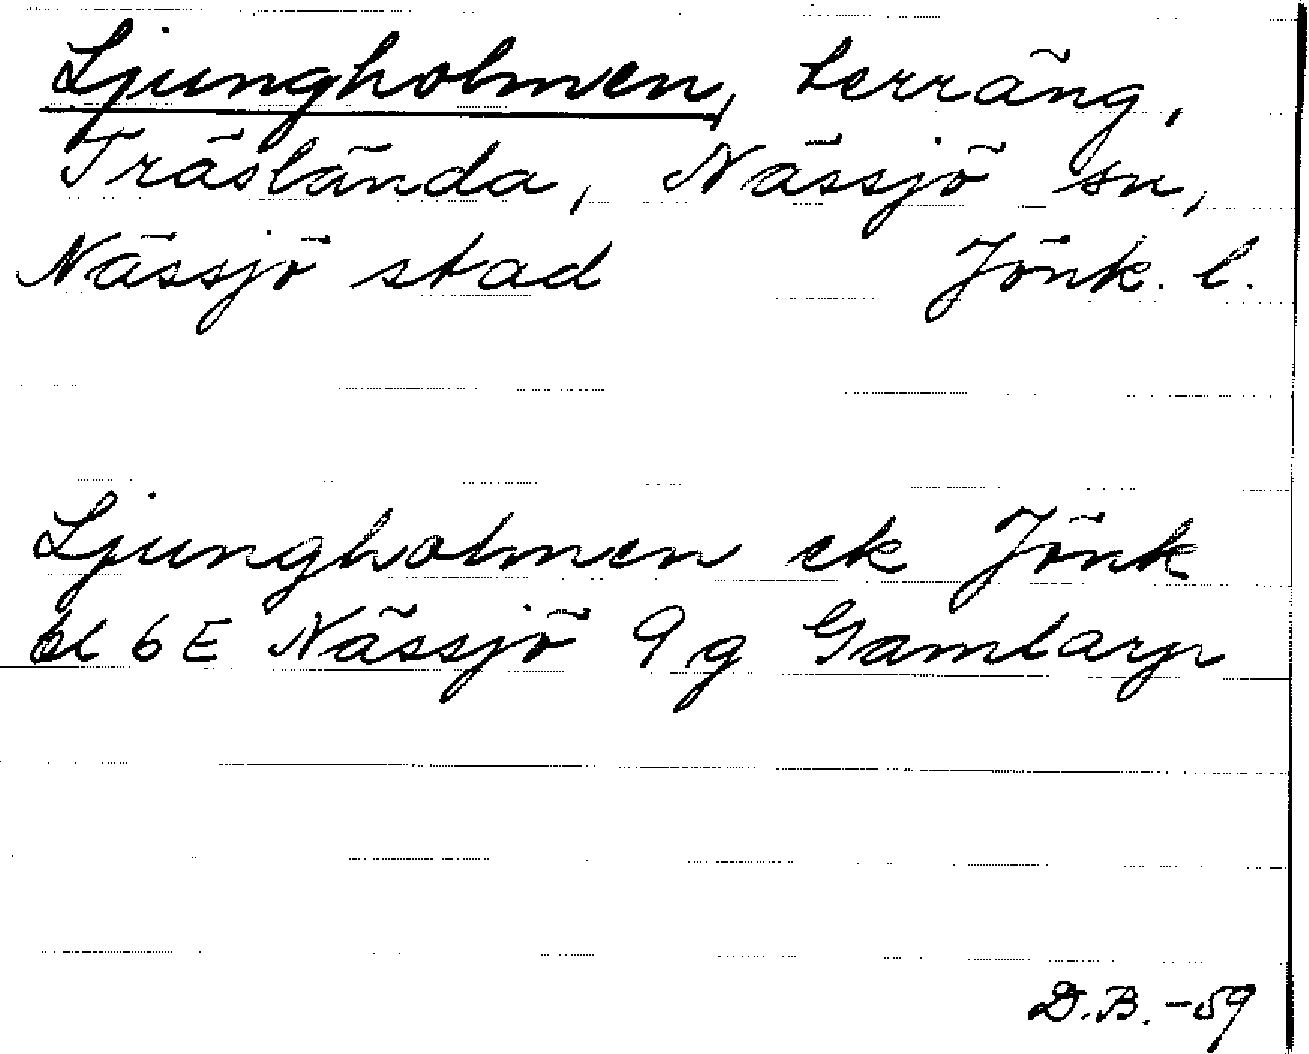 Ljungholmen, terräng,
Träslända, Nässjö sn,
Nässjö stad Jönk. l.
Ljungholmen ek Jönk
bl 6E Nässjö 9g Gamlarp
D.B. -59